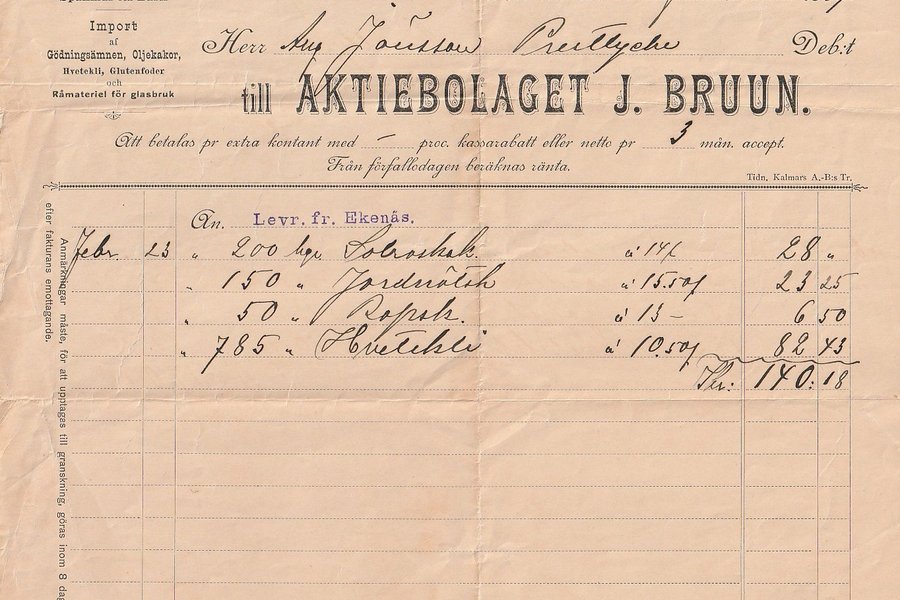 Import
af
Gödningsämnen, Oljekakor,
Hvetekli, Glutenfoder
och
Råmateriel för glasbruk
Herr Aug Jönsson Debit
till AKTIEBOLAGET J. BRUUN.
Att betalas pr extra kontant med — proc. kassarabatt eller netto pr 3 mån. accept.
Från förfallodagen beräknas ränta.
Tidn. Kalmars A.-B:s Tr.
An. Levr. fr. Ekenäs.
Febr. 23 " 200 kgr Solroskak. à 14 28 "
" 150 " Jordnötsk à 15.50 23 25
" 50 " Rapsk. à 13 – 6 50
" 785 " Hvetekli à 10.50 82 43
Kr: 140: 18
Anmärkningar måste, för att upptagas till granskning, göras inom 8 dag
efter fakturans emottagande.